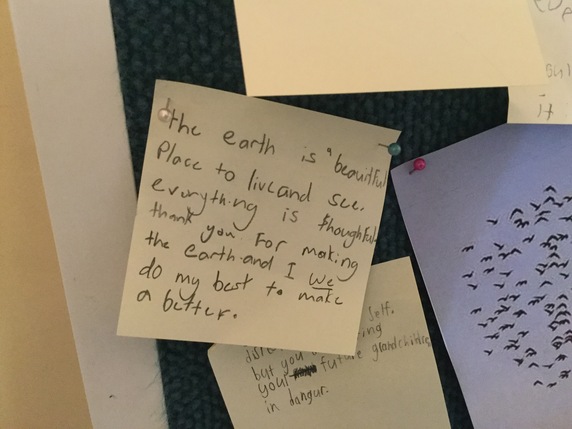 the earth is a beautiful
Place to live and see.
everything is thoughtful
thank you For making
the earth and I We
do my best to make
a better.
self.
but you
your future grandchildren
in dangur.
it